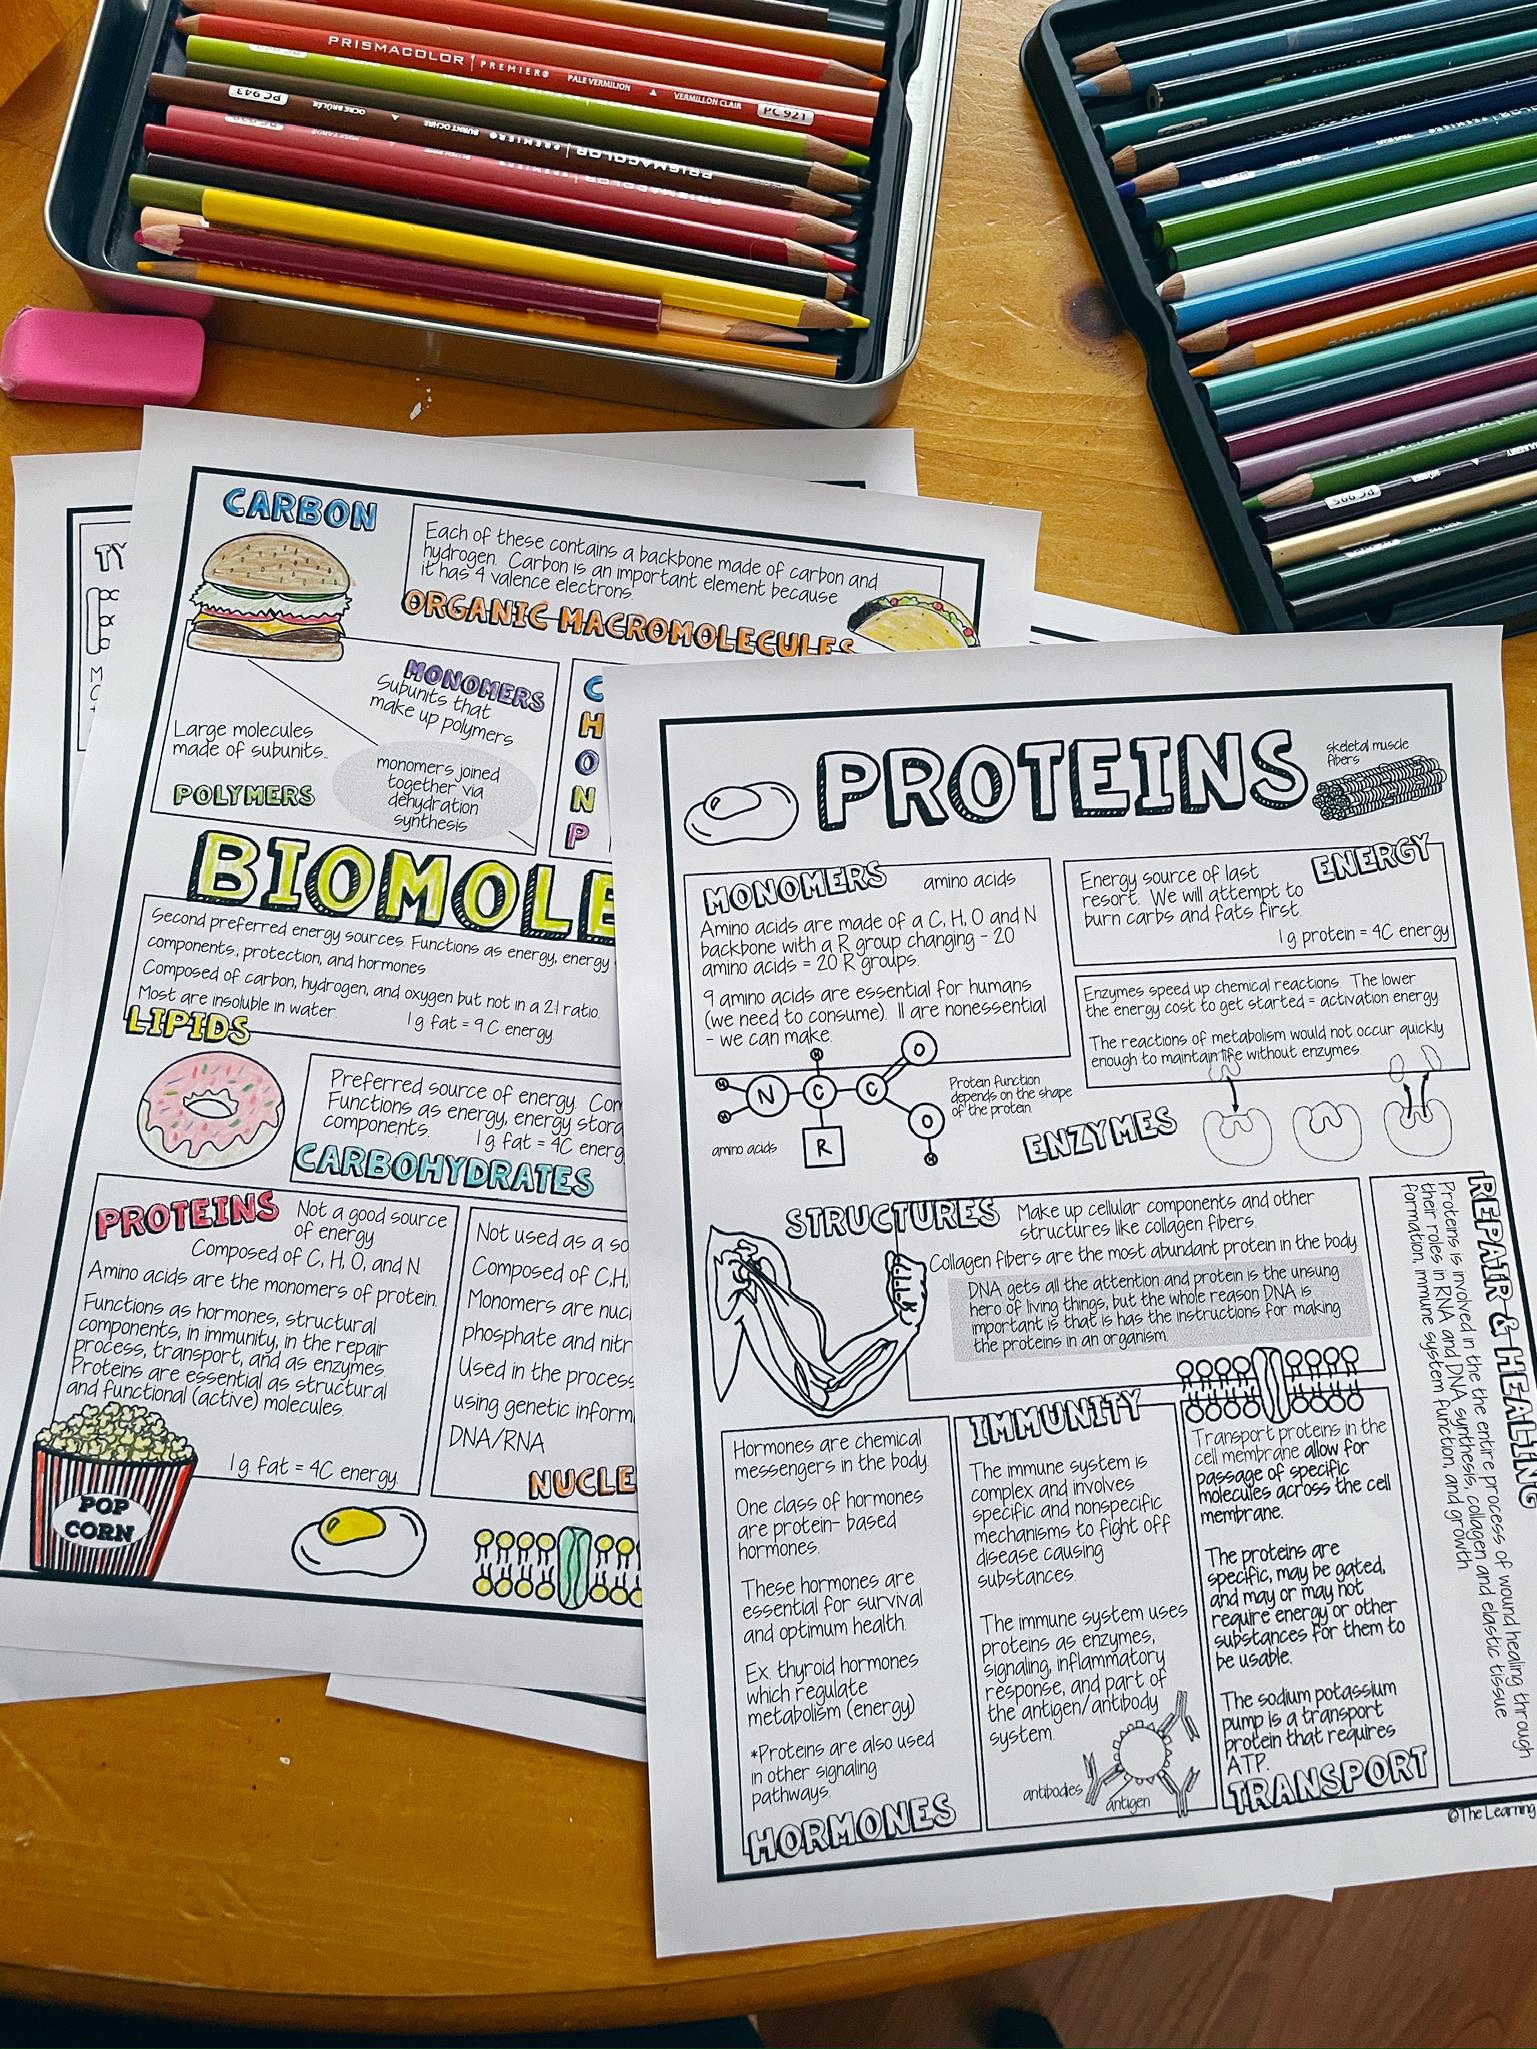 PRISMACOLOR | PREMIER® PALE VERMILION ▲ VERMILLON CLAIR PC 921
PC 943 OCRE BRÛLÉE ▲ BURNT OCHRE PREMIER® | PRISMACOLOR
PC 995
TY
CARBON
Each of these contains a backbone made of carbon and
hydrogen. Carbon is an important element because
it has 4 valence electrons.
ORGANIC MACROMOLECULES
MONOMERS
Subunits that
make up polymers
Large molecules
made of subunits.
POLYMERS
monomers joined
together via
dehydration
synthesis
C
H
O
N
P
BIOMOLE
Second preferred energy sources. Functions as energy, energy
components, protection, and hormones
Composed of carbon, hydrogen, and oxygen but not in a 2:1 ratio.
Most are insoluble in water.
1 g fat = 9C energy
LIPIDS
Preferred source of energy. Com
Functions as energy, energy stora
components.
1 g fat = 4C energ
CARBOHYDRATES
PROTEINS
Not a good source
of energy
Composed of C, H, O, and N
Amino acids are the monomers of protein.
Functions as hormones, structural
components, in immunity, in the repair
process, transport, and as enzymes.
Proteins are essential as structural
and functional (active) molecules.
1 g fat = 4C energy.
POP
CORN
Not used as a so
Composed of C,H,
Monomers are nucl
phosphate and nitr
Used in the process
using genetic inform
DNA/RNA
NUCLE
PROTEINS
skeletal muscle
fibers
MONOMERS
amino acids
Amino acids are made of a C, H, O and N
backbone with a R group changing - 20
amino acids = 20 R groups.
9 amino acids are essential for humans
(we need to consume). 11 are nonessential
- we can make.
H
H
H
N
C
C
O
O
H
R
amino acids
Protein function
depends on the shape
of the protein.
ENERGY
Energy source of last
resort. We will attempt to
burn carbs and fats first.
1 g protein = 4C energy
Enzymes speed up chemical reactions. The lower
the energy cost to get started = activation energy
The reactions of metabolism would not occur quickly
enough to maintain life without enzymes.
ENZYMES
STRUCTURES
Make up cellular components and other
structures like collagen fibers.
Collagen fibers are the most abundant protein in the body
DNA gets all the attention and protein is the unsung
hero of living things, but the whole reason DNA is
important is that is has the instructions for making
the proteins in an organism.
REPAIR & HEALING
Proteins is involved in the the entire process of wound healing through
their roles in RNA and DNA synthesis, collagen and elastic tissue
formation, immune system function, and growth
Hormones are chemical
messengers in the body.
One class of hormones
are protein- based
hormones.
These hormones are
essential for survival
and optimum health.
Ex. thyroid hormones
which regulate
metabolism (energy)
*Proteins are also used
in other signaling
pathways.
HORMONES
IMMUNITY
The immune system is
complex and involves
specific and nonspecific
mechanisms to fight off
disease causing
substances.
The immune system uses
proteins as enzymes,
signaling, inflammatory
response, and part of
the antigen/antibody
system.
antibodies
antigen
Transport proteins in the
cell membrane allow for
passage of specific
molecules across the cell
membrane.
The proteins are
specific, may be gated,
and may or may not
require energy or other
substances for them to
be usable.
The sodium potassium
pump is a transport
protein that requires
ATP.
TRANSPORT
©The Learning